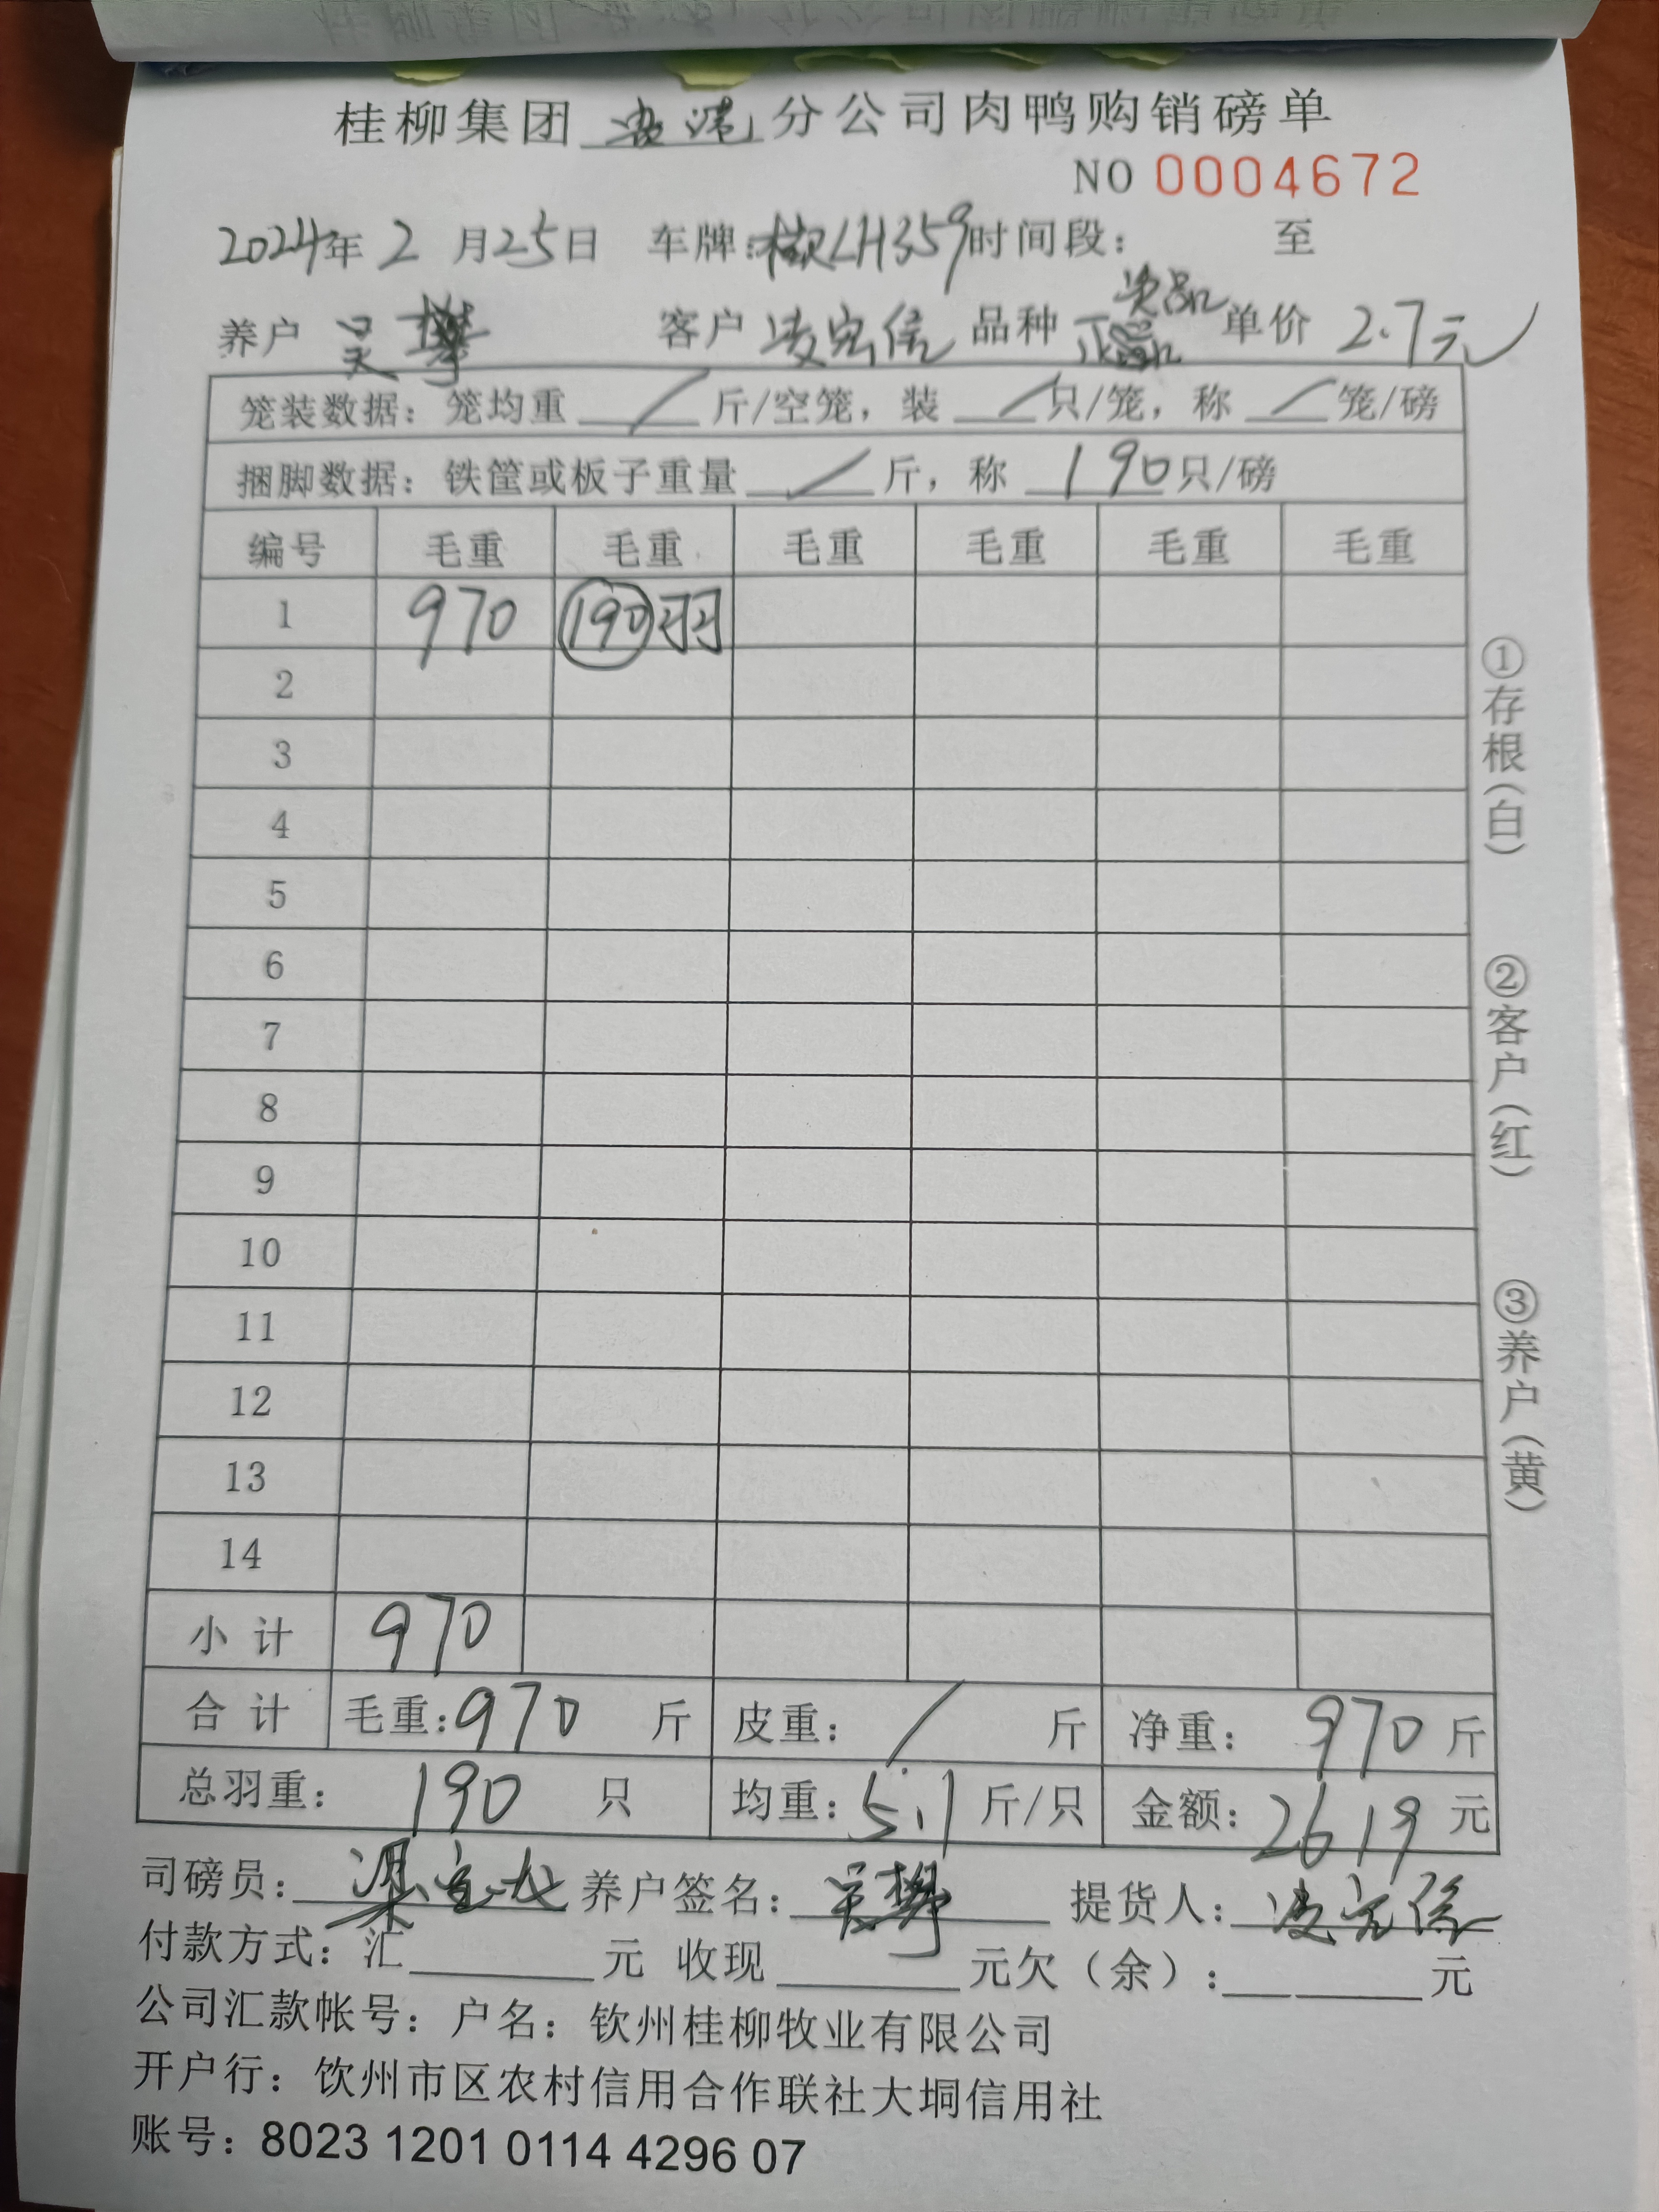 桂柳集团 分公司肉鸭购销磅单
NO 0004672
2024年 2 月25日 车牌: LH359 时间段: 至
养户 吴攀 客户 凌宏信 品种 正品 单价 2.7元
笼装数据: 笼均重 / 斤/空笼, 装 / 只/笼, 称 / 笼/磅
捆脚数据: 铁筐或板子重量 / 斤, 称 190 只/磅
编号 毛重 毛重 毛重 毛重 毛重 毛重
1 970 190羽
2
3
4
5
6
7
8
9
10
11
12
13
14
小 计 970
合 计 毛重: 970 斤 皮重: / 斤 净重: 970 斤
总羽重: 190 只 均重: 5.1 斤/只 金额: 2619 元
司磅员: 梁 养户签名: 吴攀 提货人: 凌宏信
付款方式: 汇 元 收现 元欠(余): 元
公司汇款帐号: 户名: 钦州桂柳牧业有限公司
开户行: 饮州市区农村信用合作联社大垌信用社
账号: 8023 1201 0114 4296 07
①存根(白)
②客户(红)
③养户(黄)